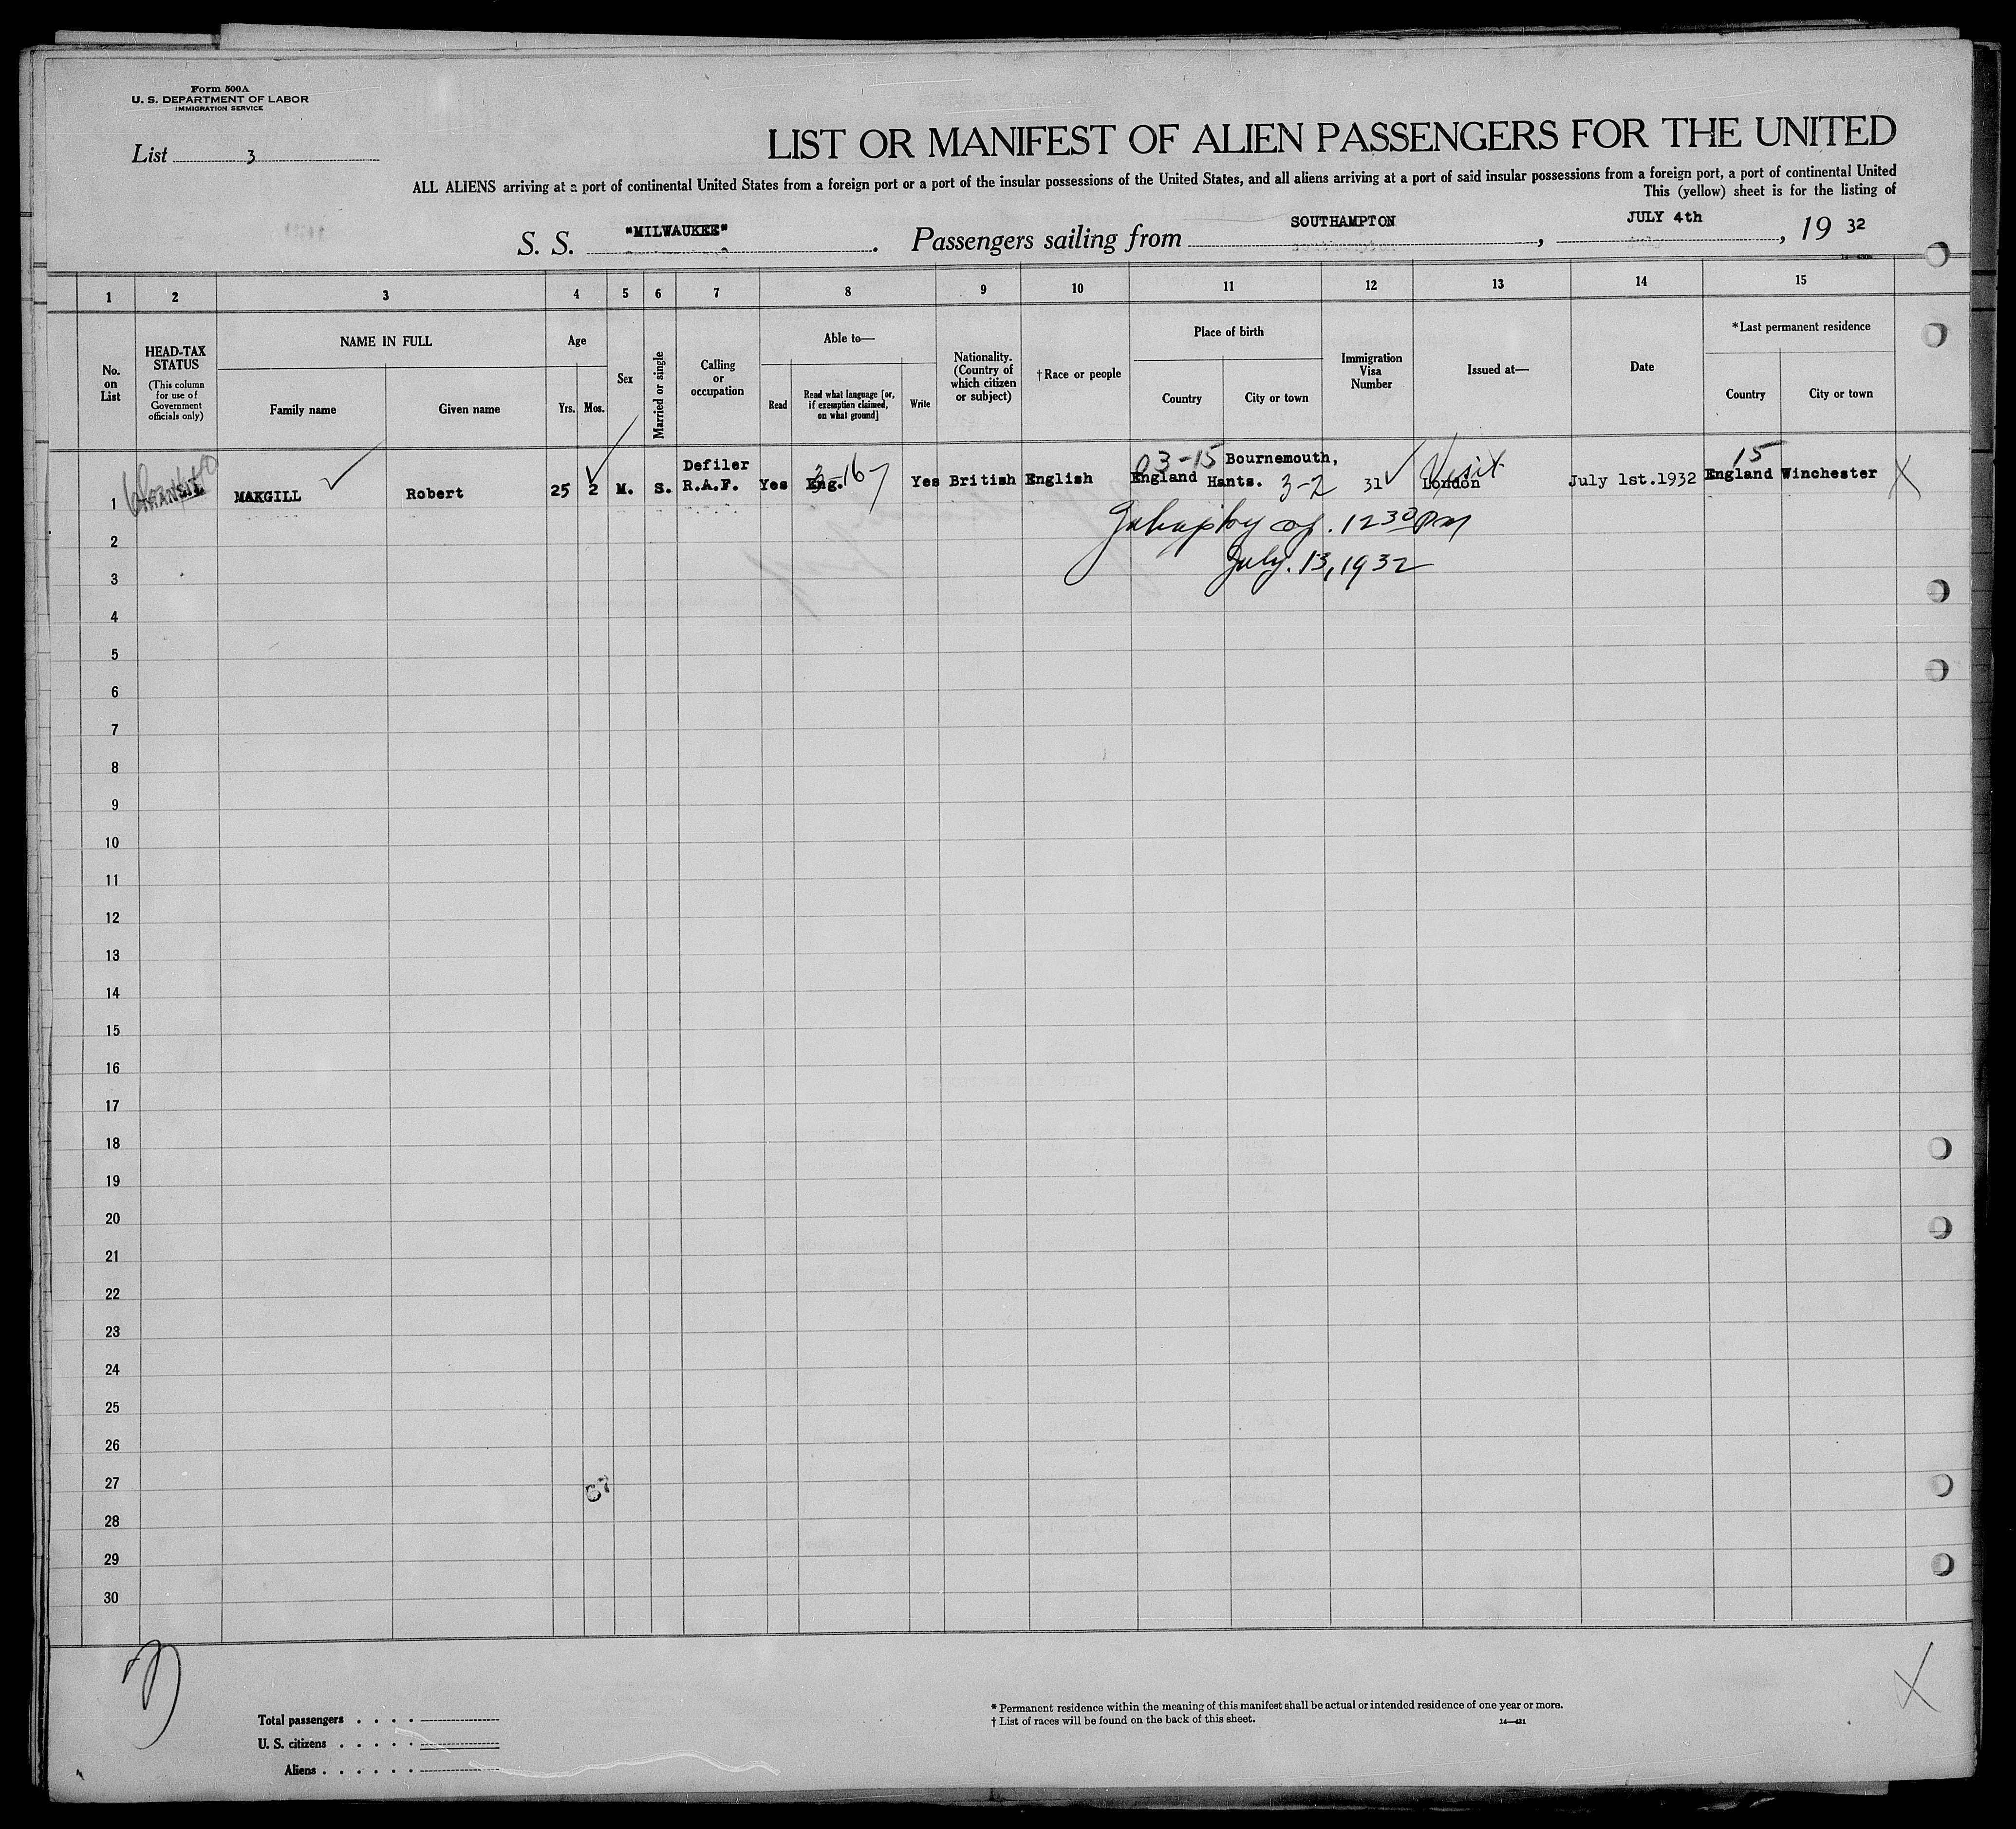 Form 500A
U. S. DEPARTMENT OF LABOR
IMMIGRATION SERVICE
List 3
LIST OR MANIFEST OF ALIEN PASSENGERS FOR THE UNITED
ALL ALIENS arriving at a port of continental United States from a foreign port or a port of the insular possessions of the United States, and all aliens arriving at a port of said insular possessions from a foreign port, a port of continental United
This (yellow) sheet is for the listing of
S. S. "MILWAUKEE". Passengers sailing from SOUTHAMPTON, JULY 4th, 19 32
1 2 3 4 5 6 7 8 9 10 11 12 13 14 15
No. on List
HEAD-TAX STATUS
(This column for use of Government officials only)
NAME IN FULL
Family name
Given name
Age
Yrs. Mos.
Sex
Married or single
Calling or occupation
Able to—
Read
Read what language [or, if exemption claimed, on what ground]
Write
Nationality. (Country of which citizen or subject)
†Race or people
Place of birth
Country
City or town
Immigration Visa Number
Issued at—
Date
*Last permanent residence
Country
City or town
1 TRANSIT MAKGILL Robert 25 2 M. S. Defiler R.A.F. Yes Eng. 3-167 Yes British English England 03-15 Bournemouth, Hants. 3-2 31 London Visit July 1st.1932 England 15 Winchester X
12 30 PM
July. 13, 1932
2
3
4
5
6
7
8
9
10
11
12
13
14
15
16
17
18
19
20
21
22
23
24
25
26
27
28
29
30
Total passengers . . . .
U. S. citizens . . . . .
Aliens . . . . . .
* Permanent residence within the meaning of this manifest shall be actual or intended residence of one year or more.
† List of races will be found on the back of this sheet.
X